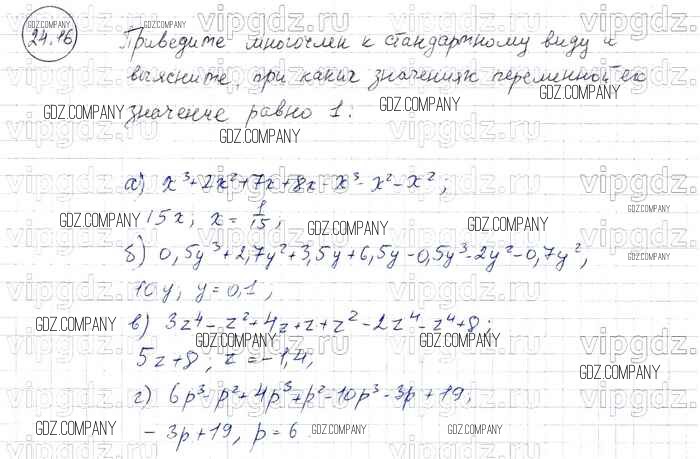 24.16
Приведите многочлен к стандартному виду и
выясните, при каких значениях переменной его
значение равно 1:
а) x³+2x²+7x+8x-x³-x²-x²;
15x; x = 1/15;
б) 0,5y³+2,7y²+3,5y+6,5y-0,5y³-2y²-0,7y²;
10y; y=0,1;
в) 3z⁴-z²+4z+z+z²-2z⁴-z⁴+8;
5z+8, z=-1,4;
г) 6p³-p²+4p³+p²-10p³-3p+19;
-3p+19, p=6
GDZ.COMPANY
vipgdz.ru